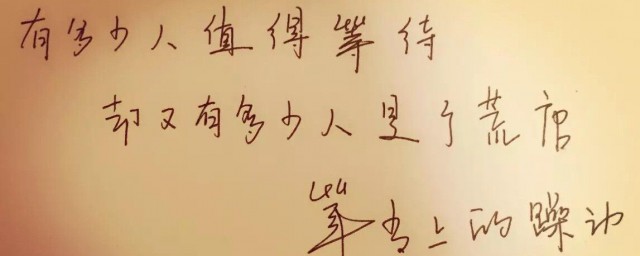 有多少人值得等待
却又有多少人是了荒唐
上的躁动